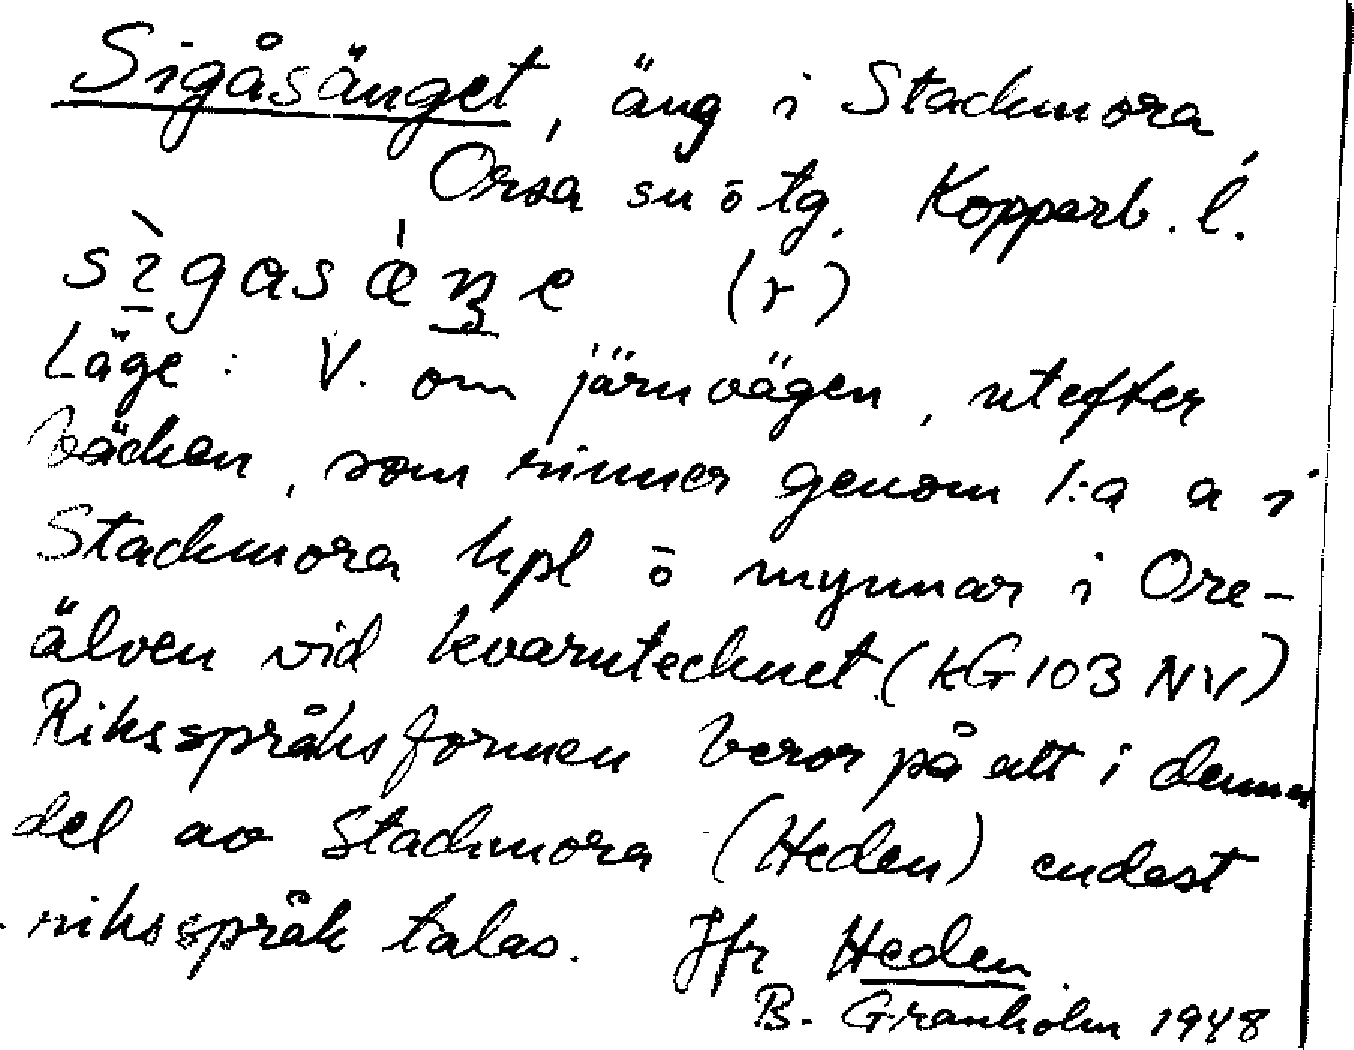 Sigåsänget, äng i Stackmora
Orsa sn ō tg. Kopparb. l.
(r)
Läge: V. om järnvägen, utefter
bäcken, som rinner genom 1:a a i
Stackmora hpl ō mynnar i Ore-
älven vid kvarntecknet (KG 103 NV)
Riksspråksformen beror på att i denna
del av Stackmora (Heden) endast
riksspråk talas. Jfr Heden
B. Granholm 1948